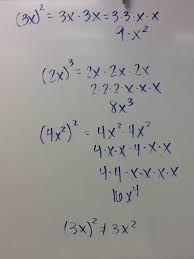 (3x)² = 3x · 3x = 3·3·x·x
9·x²
(2x)³ = 2x · 2x · 2x
2·2·2·x·x·x
8x³
(4x²)² = 4x² · 4x²
4·x·x·4·x·x
4·4·x·x·x·x
16x⁴
(3x)² ≠ 3x²